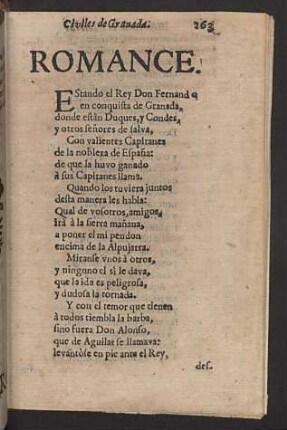 Civiles de Granada. 263
ROMANCE.
EStando el Rey Don Fernando
en conquista de Granada,
donde estàn Duques, y Condes,
y otros señores de salva,
Con valientes Capitanes
de la nobleza de España:
de que la huvo ganado
à sus Capitanes llama.
Quando los tuviera juntos
desta manera les habla:
Qual de vosotros, amigos,
irà à la sierra mañana,
a poner el mi pendon
encima de la Alpujarra.
Miranse vnos à otros,
y ninguno el sì le dava,
que la ida es peligrosa,
y dudosa la tornada.
Y con el temor que tienen
à todos tiembla la barba,
sino fuera Don Alonso,
que de Aguilar se llamava:
levantòse en pie ante el Rey,
des-